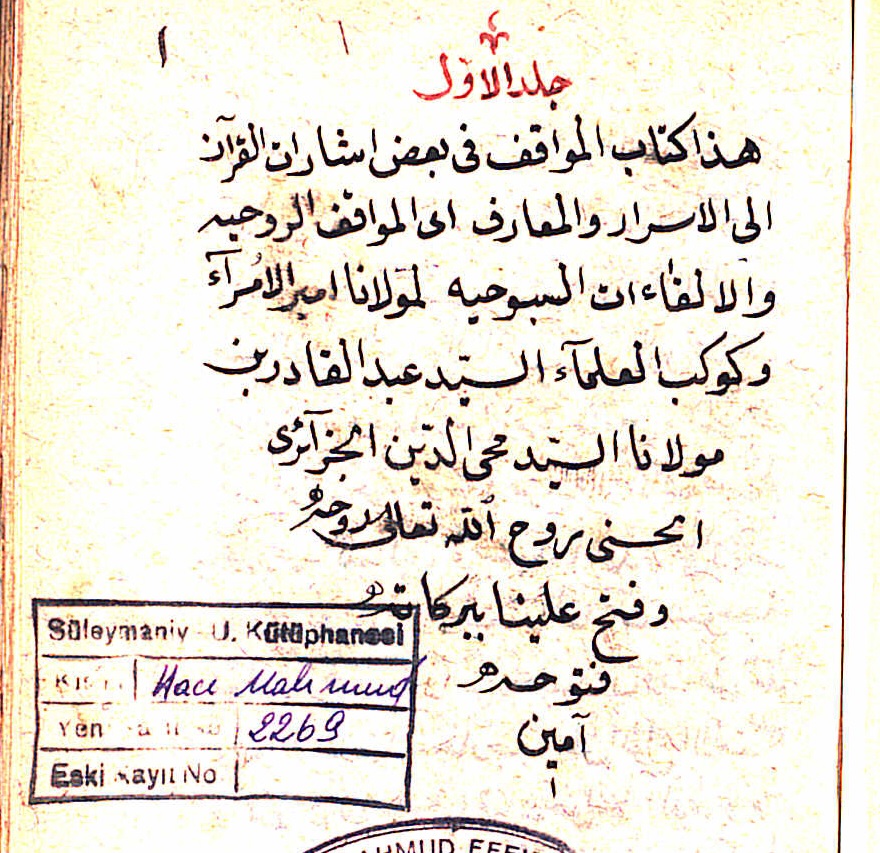 ١
جلد الاول
هذا كتاب المواقف فى بعض اشارات القرآن
الى الاسرار والمعارف اى المواقف الروحيه
والالقاءات السبوحيه لمولانا امير الامرآء
وكوكب العلمآء السيّد عبد القادر بن
مولانا السيّد محى الدّين الجزآئرى
الحسنى روح الله تعالى روحه
وفتح علينا ببركات
فتوحه
آمين
Süleymaniy U. Kütüphanesi
Hacı Mahmud
Yeni 2269
Eski Kayıt No
MAHMUD EFE